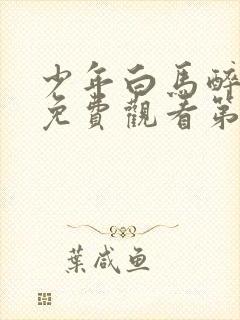 少年白馬醉
免費觀看第
葉咸魚